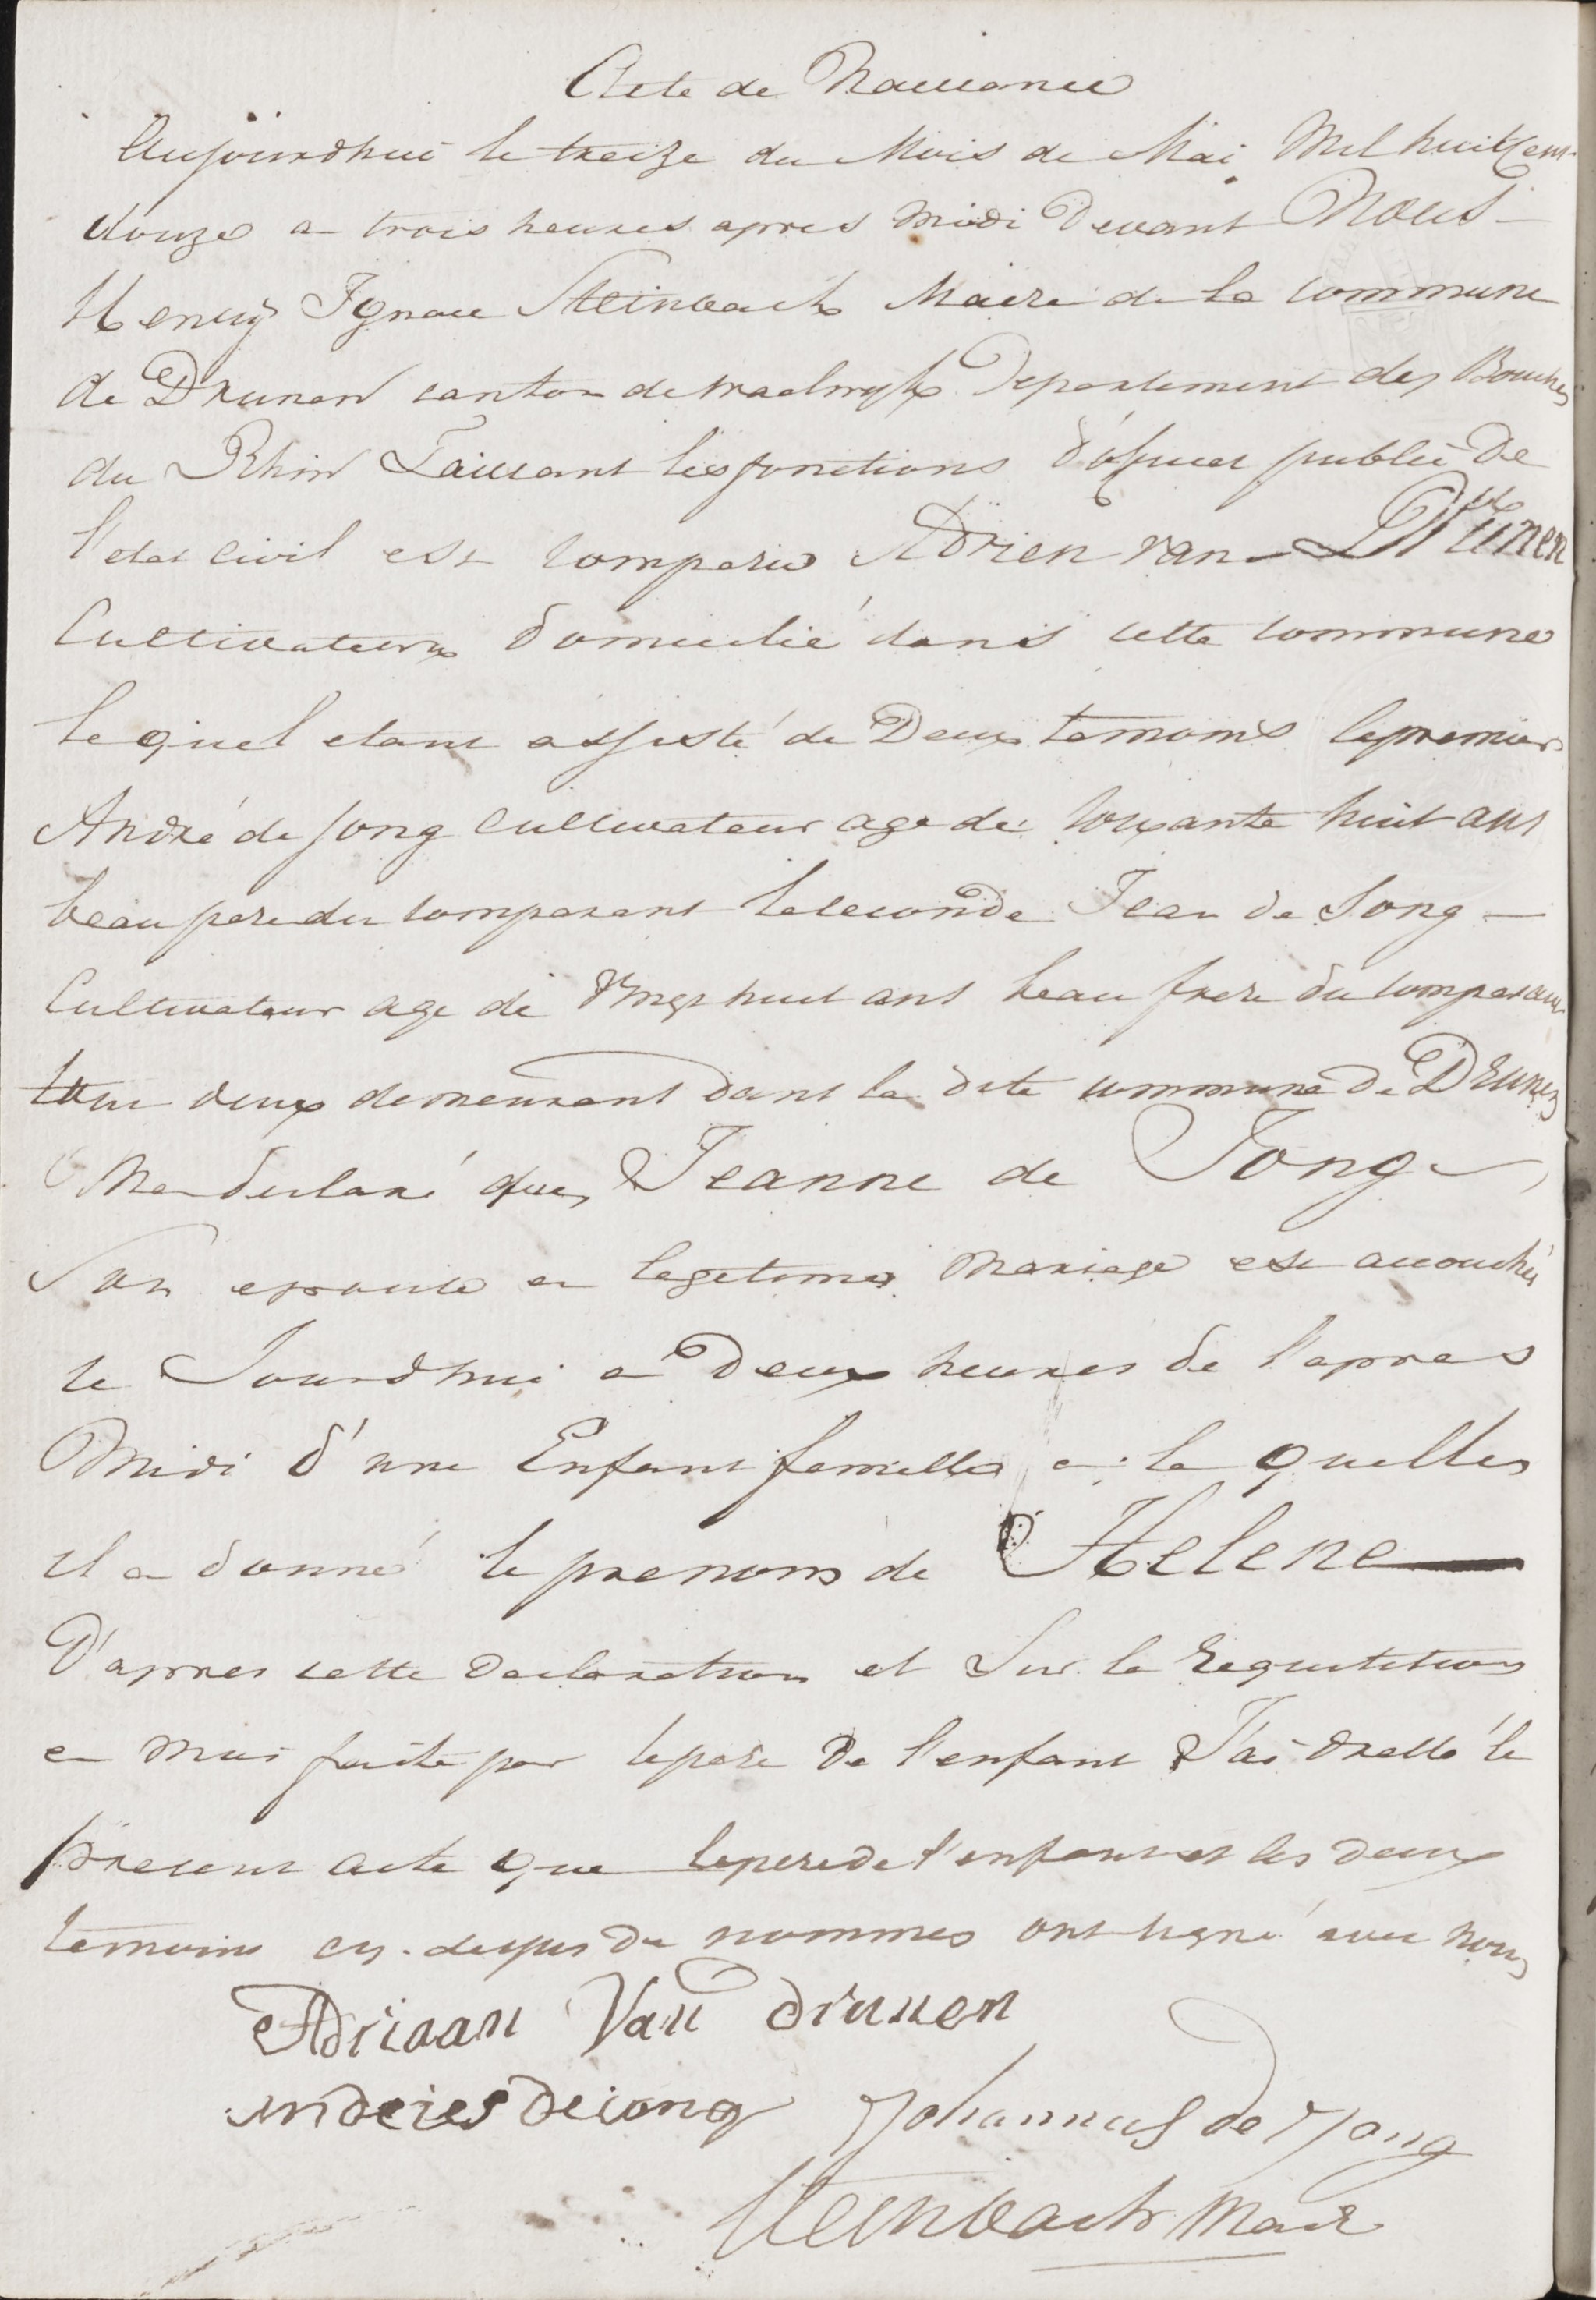 Acte de Naissance
Aujourdhui le treize du Mois de Mai Mil huit Cent
douze a trois heures apres midi Devant Nous
Henry Ignace Steinbach Maire de la commune
de Drunen canton de Waalwyk Departement des Bouches
du Rhin Faissant les fonctions d'officier public De
l'etat Civil est comparu Adrien van Drunen
Cultivateur domicilié dans cette commune
le quel etant assisté de Deux temoins le premier
André de Jong cultivateur age de soixante huit ans
beau pere du comparant le seconde Jean de Jong
Cultivateur age de vingt huit ans beau frere du comparant
tous deux demeurant dans la dite commune de Drunen
M'a declaré que Jeanne de Jong
Son epouse en legetime Mariage est accouchée
le Jourdhui a Deux heures de l'apres
Midi d'une Enfant femelle a la quelle
il a donné le prenom de Helene
D'apres cette declaration et Sur la requisition
a moi faite par le pere De l'enfant J'ai dressé le
present acte que le pere de l'enfant et les deux
temoins cy. dessus de nommes ont signé avec nous
Adriaan Van drunen
anderies de iong Johannes de Jong
Steinbach Maire